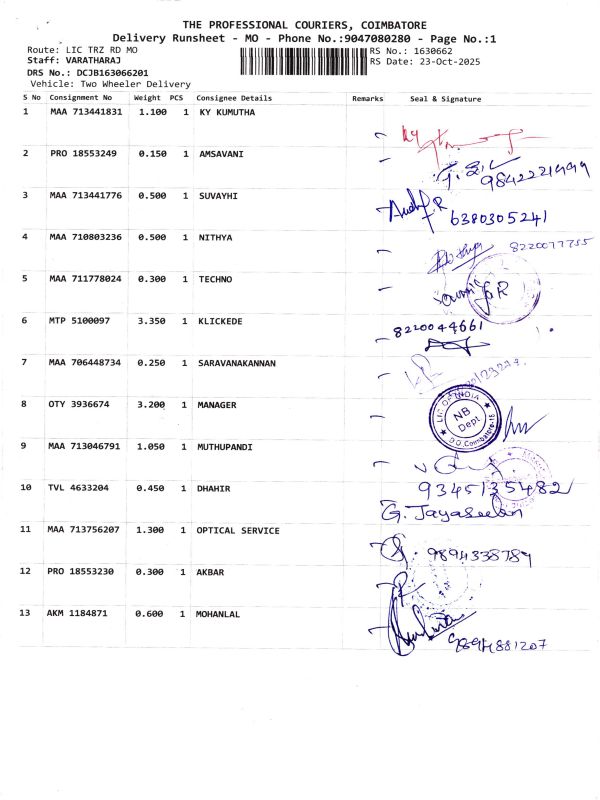 THE PROFESSIONAL COURIERS, COIMBATORE
Delivery Runsheet - MO - Phone No.:9047080280 - Page No.:1
Route: LIC TRZ RD MO
RS No.: 1630662
Staff: VARATHARAJ
RS Date: 23-Oct-2025
DRS No.: DCJB163066201
Vehicle: Two Wheeler Delivery
S No Consignment No Weight PCS Consignee Details Remarks Seal & Signature
1 MAA 713441831 1.100 1 KY KUMUTHA
2 PRO 18553249 0.150 1 AMSAVANI
9842221999
3 MAA 713441776 0.500 1 SUVAYHI
6380305241
4 MAA 710803236 0.500 1 NITHYA
8220077755
5 MAA 711778024 0.300 1 TECHNO
6 MTP 5100097 3.350 1 KLICKEDE
8220044661
7 MAA 706448734 0.250 1 SARAVANAKANNAN
8 OTY 3936674 3.200 1 MANAGER
LIC OF INDIA
NB
Dept
D.O. Coimbatore-18
9 MAA 713046791 1.050 1 MUTHUPANDI
10 TVL 4633204 0.450 1 DHAHIR
9345135482
G. Jayaseelan
11 MAA 713756207 1.300 1 OPTICAL SERVICE
9894338789
12 PRO 18553230 0.300 1 AKBAR
13 AKM 1184871 0.600 1 MOHANLAL
9894881207